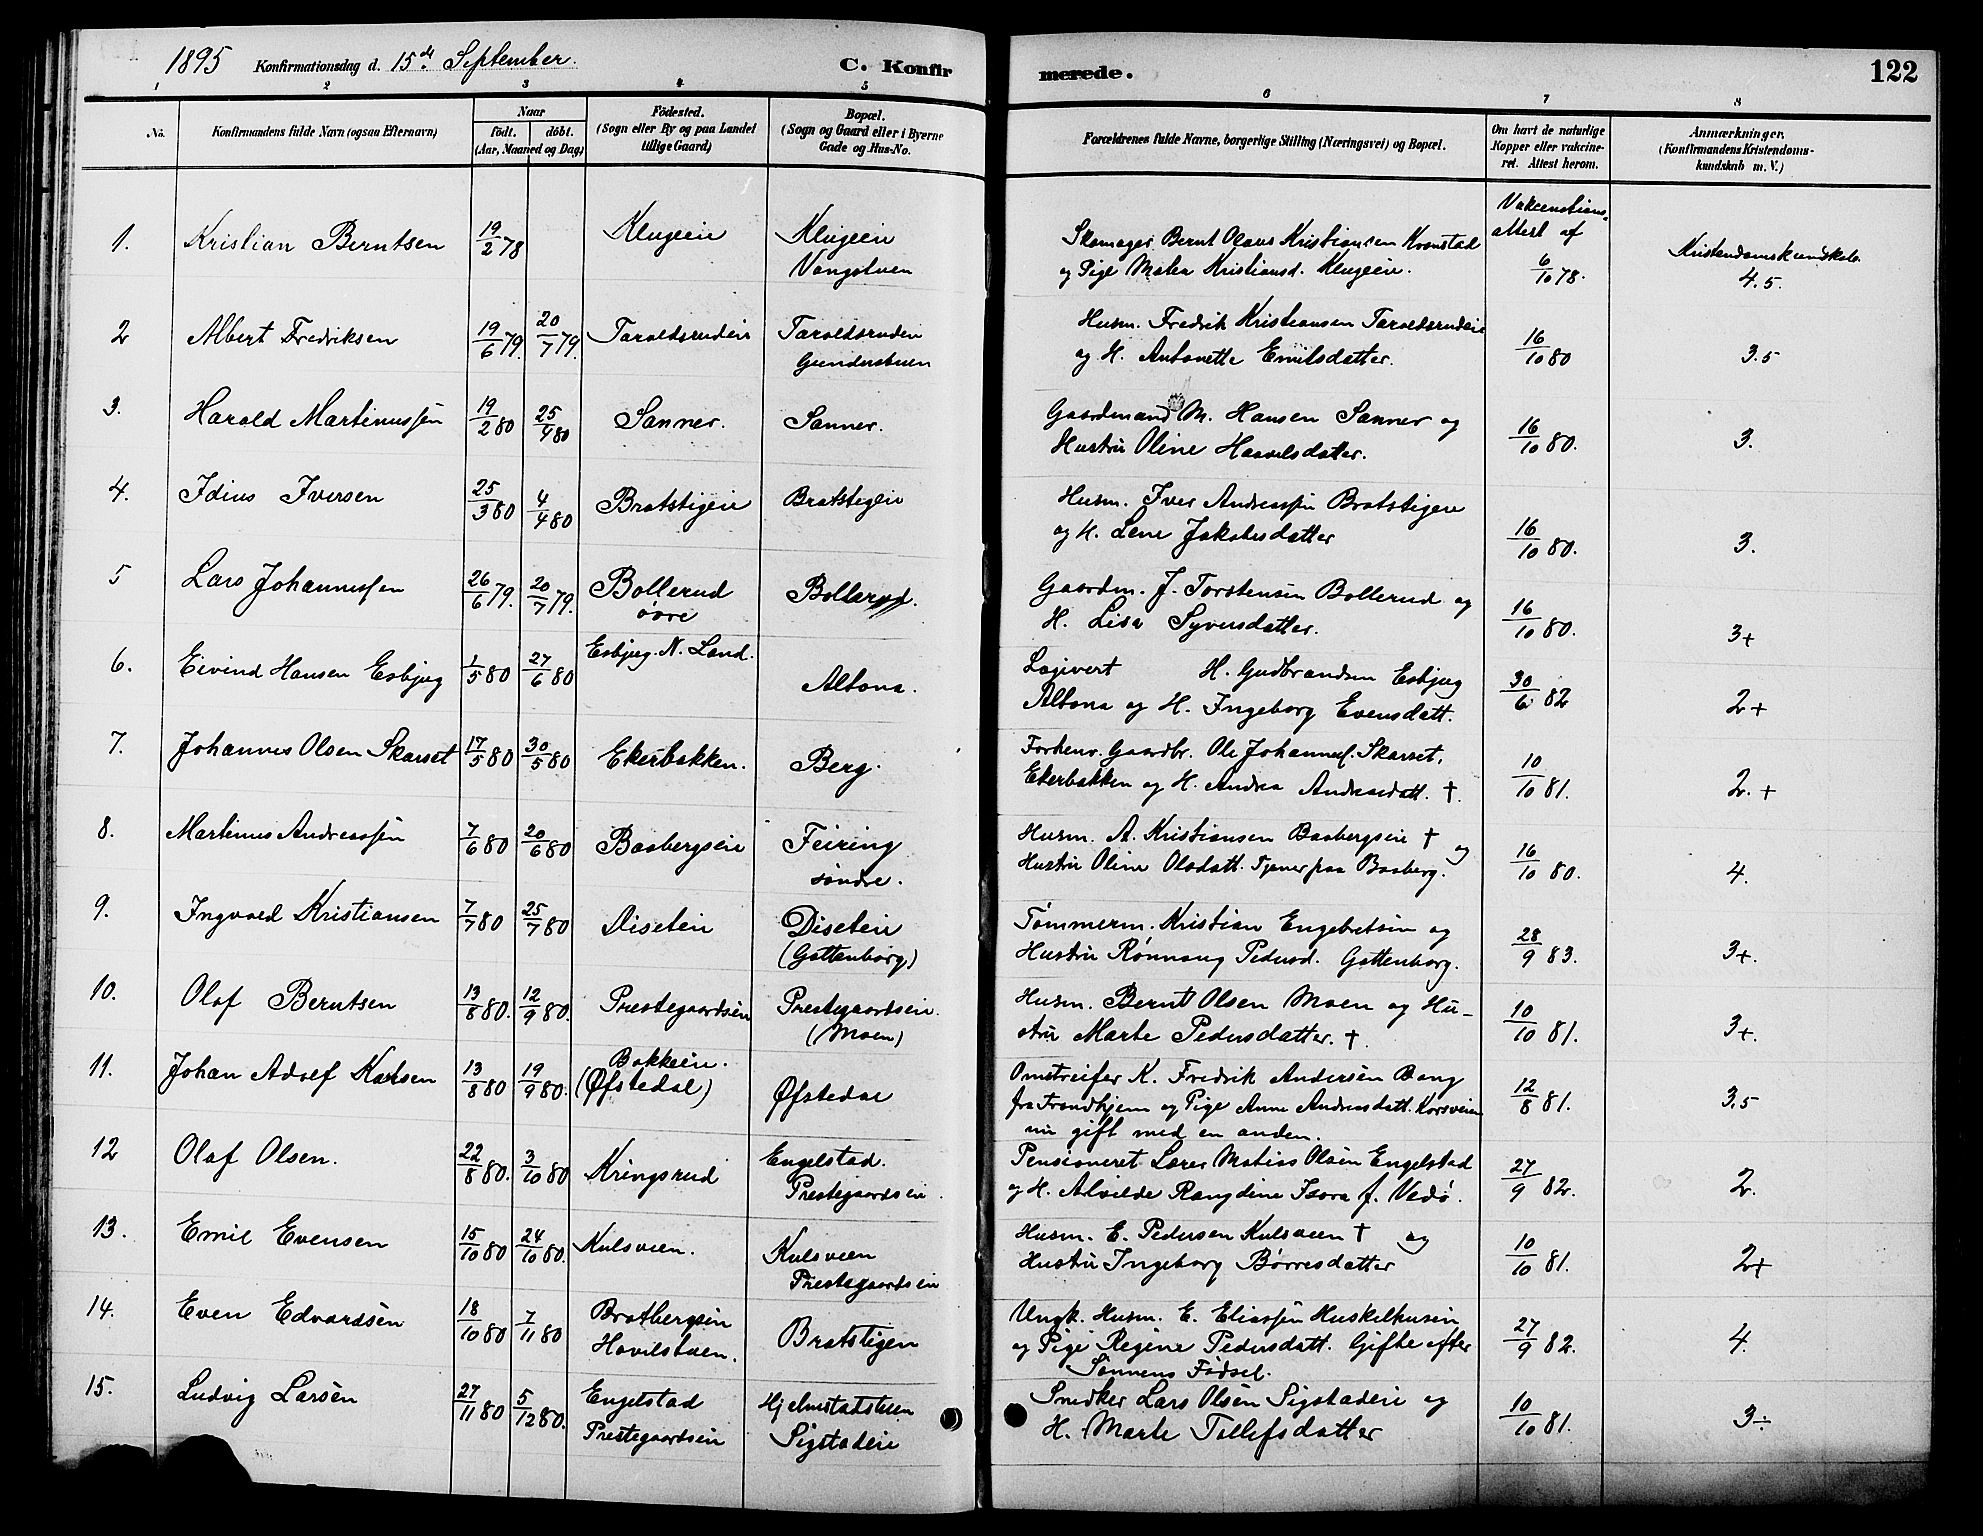 1895 Konfirmationsdag d. 15de September. C. Konfirmerede. 122
1 2 3 4 5 6 7 8
No. Konfirmandens fulde Navn (ogsaa Efternavn) Naar født. døbt. (Aar, Maaned og Dag) Födested. (Sogn eller By og paa Landet tillige Gaard) Bopæl. (Sogn og Gaard eller i Byerne Gade og Hus-No. Forældrenes fulde Navne, borgerlige Stilling (Næringsvei) og Bopæl. Om havt de naturlige Kopper eller vakcineret. Attest herom. Anmærkninger. (Konfirmandens Kristendomskundskab m. V.)
Vakcinations
1. Kristian Berntsen 19/2 78 Klugeie Klugeie Skomager Bernt Olaus Kristiansen Kronstad attest af Kristendomskundskab
Vangstuen og Pige Matea Kristiansd. Klugeie. 6/10 78. 4.5.
2 Albert Fredriksen 19/6 79. 20/7 79. Taraldsrudeie Taraldsrudeie Husm. Fredrik Kristiansen Taraldsrudeie 16/10 80 3.5
Gunderstuen og H. Antonette Emilsdatter.
3. Harald Martinussen 19/2 80 25/4 80 Sanner. Sanner. Gaardmand M. Hansen Sanner og 16/10 80. 3.
Hustru Oline Haavelsdatter.
4. Idius Iversen 25/3 80 4/4 80 Bratstigeie Bratstigeie Husm. Iver Andreassen Bratstigeie 16/10 80. 3.
og H. Lene Jakobsdatter
5 Lars Johannessen 26/6 79. 20/7 79. Bollerud Bollerud. Gaardm. J. Torstensen Bollerud og 16/10 80. 3+
øvre H. Lisa Syversdatter.
6. Eivind Hansen Esbjug 1/5 80 27/6 80 Esbjug. N. Land. Altona. Logivert H. Gudbrandsen Esbjug 30/6 82 2+
Altona og H. Ingeborg Evensdatt.
7. Johannes Olsen Skarset 17/5 80 30/5 80 Ekerbakken. Berg. Forhenv. Gaardbr. Ole Johannes. Skarset, 10/10 81. 2.+
Ekerbakken og H. Andrea Andreasdatt. †.
8. Martinus Andreassen 7/6 80 20/6 80 Baabergseie Feiring Husm. A. Kristiansen Baabergseie † og 16/10 80. 4.
søndre. Hustru Oline Olsdatt. Tjener paa Baaberg.
9. Ingvald Kristiansen 7/7 80 25/7 80 Diseteie Diseteie Tømmerm. Kristian Engebretsen og 28/9 83. 3+.
(Gottenborg) Hustru Rønnaug Pedersd. Gottenborg.
10. Olaf Berntsen 13/8 80. 12/9 80. Prestegaardseie Prestegaardseie. Husm. Bernt Olsen Moen og Hu- 10/10 81. 3+.
(Moen) stru Marte Pedersdatter. †.
11. Johan Adolf Karlsen 13/8 80 19/9 80. Bakkeie. Øfstedal Omstreifer K. Fredrik Andersen Bang 12/8 81. 3.5
(Øfstedal) fra Trondhjem og Pige Anne Andreasdatt. Korsveien
nu gift med en anden.
12 Olaf Olsen. 22/8 80. 3/10 80 Kringsrud Engelstad. Pensioneret Lærer Matias Olsen Engelstad 27/9 82. 2.
Prestegaardseie. og H. Alvilde Rangdine Isora f. Vedø.
13. Emil Evensen 15/10 80 24/10 80. Kulsveen. Kulsveen Husm. E. Pedersen Kulsveen † og 10/10 81. 2+
Prestegaardseie Hustru Ingeborg Børresdatter
14. Even Edvardsen 18/10 80 7/11 80 Bratbergseie Bratstigen Ungk. Husm. E. Eliassen Huskelhuseie 27/9 82. 4.
Havilstuen. og Pige Regine Pedersdatt. Gifte efter
Sønnens Fødsel.
15. Ludvig Larsen 27/11 80 5/12 80. Engelstad Hjelmstadstuen Snedker Lars Olsen Sigstadeie og 10/10 81. 3÷
Prestegaardseie Sigstadeie H. Marte Tollefsdatter